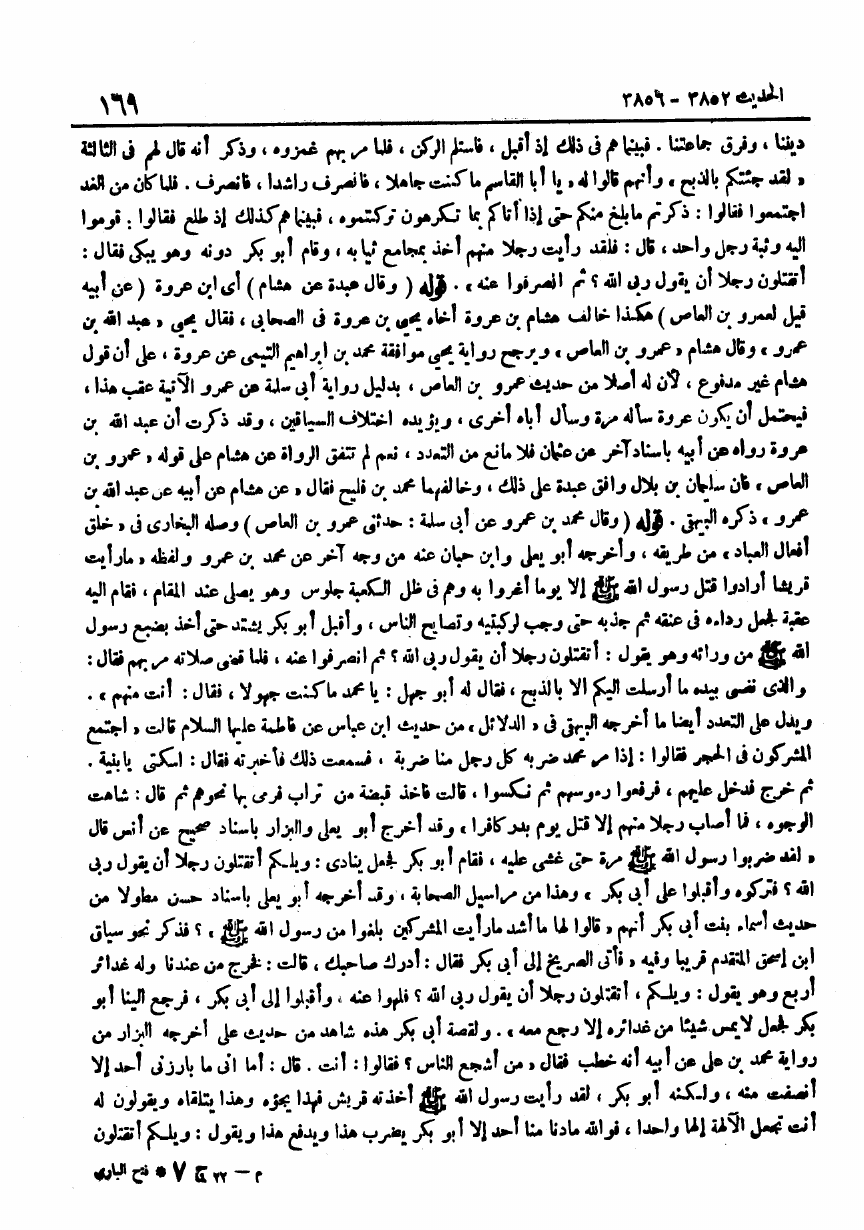 الحديث ٣٨٥٢ - ٣٨٥٦
١٦٩
ديننا ، وفرق جماعتنا . فبينما هم فى ذلك إذ أقبل ، فاستلم الركن ، فلما مر بهم غمزوه ، وذكر أنه قال لهم فى الثالثة
« لقد جئتكم بالذبح ، وأنهم قالوا له « يا أبا القاسم ما كنت جاهلا ، فانصرف راشدا ، فانصرف . فلما كان من الغد
اجتمعوا فقالوا : ذكرتم ما بلغ منكم حتى إذا أتاكم بما تكرهون تركتموه ، فبينما هم كذلك إذ طلع فقالوا : قوموا
اليه وثبة رجل واحد ، قال : فلقد رأيت رجلا منهم أخذ بمجامع ثيابه ، وقام أبو بكر دونه وهو يبكى فقال :
أتقتلون رجلا أن يقول ربى الله ؟ ثم انصرفوا عنه » . قوله ( وقال عبدة عن هشام ) أى ابن عروة ( عن أبيه
قيل لعمرو بن العاص ) هكذا خالف هشام بن عروة أخاه يحيى بن عروة فى الصحابى ، فقال يحيى « عبد الله بن
عمرو » وقال هشام « عمرو بن العاص » ويرجح رواية يحيى موافقة محمد بن ابراهيم التيمى عن عروة ، على أن قول
هشام غير مدفوع ، لأن له أصلا من حديث عمرو بن العاص ، بدليل رواية أبى سلمة عن عمرو الآتية عقب هذا ،
فيحتمل أن يكون عروة سأله مرة وسأل أباه أخرى ، ويؤيده اختلاف السياقين ، وقد ذكرت أن عبد الله بن
عروة رواه عن أبيه باسناد آخر عن عثمان فلا مانع من التعدد ، نعم لم تتفق الرواة عن هشام على قوله « عمرو بن
العاص » فان سليمان بن بلال وافق عبدة على ذلك ، وخالفهما محمد بن فليح فقال « عن هشام عن أبيه عن عبد الله بن
عمرو » ذكره البيهقى . قوله ( وقال محمد بن عمرو عن أبى سلمة : حدثنى عمرو بن العاص ) وصله البخارى فى « خلق
أفعال العباد » من طريقه ، وأخرجه أبو يعلى وابن حبان عنه من وجه آخر عن محمد بن عمرو ولفظه « ما رأيت
قريشا أرادوا قتل رسول الله ﷺ إلا يوما أغروا به وهم فى ظل الكعبة جلوس وهو يصلى عند المقام ، فقام اليه
عقبة فجعل رداءه فى عنقه ثم جذبه حتى وجب لركبتيه وتصايح الناس ، وأقبل أبو بكر يشتد حتى أخذ بضبع رسول
الله ﷺ من ورائه وهو يقول : أتقتلون رجلا أن يقول ربى الله ؟ ثم انصرفوا عنه ، فلما قضى صلاته مر بهم فقال :
والذى نفسى بيده ما أرسلت اليكم الا بالذبح ، فقال له أبو جهل : يا محمد ما كنت جهولا ، فقال : أنت منهم » .
ويدل على التعدد أيضا ما أخرجه البيهقى فى « الدلائل » من حديث ابن عباس عن فاطمة عليها السلام قالت « اجتمع
المشركون فى الحجر فقالوا : إذا مر محمد ضربه كل رجل منا ضربة ، فسمعت ذلك فأخبرته فقال : اسكتى يا بنية .
ثم خرج فدخل عليهم ، فرفعوا رءوسهم ثم نكسوا ، قالت فاخذ قبضة من تراب فرمى بها نحوهم ثم قال : شاهت
الوجوه ، فما أصاب رجلا منهم إلا قتل يوم بدر كافرا » وقد أخرج أبو يعلى والبزار باسناد صحيح عن أنس قال
« لقد ضربوا رسول الله ﷺ مرة حتى غشى عليه ، فقام أبو بكر فجعل ينادى : ويلكم أتقتلون رجلا أن يقول ربى
الله ؟ فتركوه وأقبلوا على أبى بكر » وهذا من مراسيل الصحابة ، وقد أخرجه أبو يعلى باسناد حسن مطولا من
حديث أسماء بنت أبى بكر أنهم « قالوا لها ما أشد ما رأيت المشركين بلغوا من رسول الله ﷺ » ؟ فذكر نحو سياق
ابن إسحق المتقدم قريبا وفيه « فأتى الصريخ إلى أبى بكر فقال : أدرك صاحبك ، قالت : فخرج من عندنا وله غدائر
أربع وهو يقول : ويلكم ، أتقتلون رجلا أن يقول ربى الله ؟ فلهوا عنه ، وأقبلوا إلى أبى بكر ، فرجع الينا أبو
بكر فجعل لا يمس شيئا من غدائره إلا رجع معه » . ولقصة أبى بكر هذه شاهد من حديث على أخرجه البزار من
رواية محمد بن على عن أبيه أنه خطب فقال « من أشجع الناس ؟ فقالوا : أنت . قال : أما انى ما بارزنى أحد إلا
أنصفت منه ، ولكنه أبو بكر ، لقد رأيت رسول الله ﷺ أخذته قريش فهذا يجؤه وهذا يتلقاه ويقولون له
أنت تجعل الآلهة إلها واحدا ، فوالله ما دنا منا أحد إلا أبو بكر يضرب هذا ويدفع هذا ويقول : ويلكم أتقتلون
م — ٢٢ ج ٧ * فتح البارى